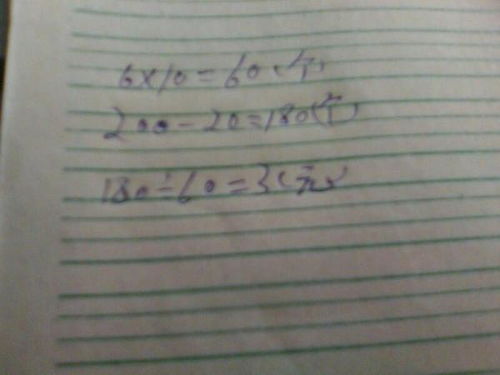 6×10=60(个)
200-20=180(个)
180÷60=3(元)